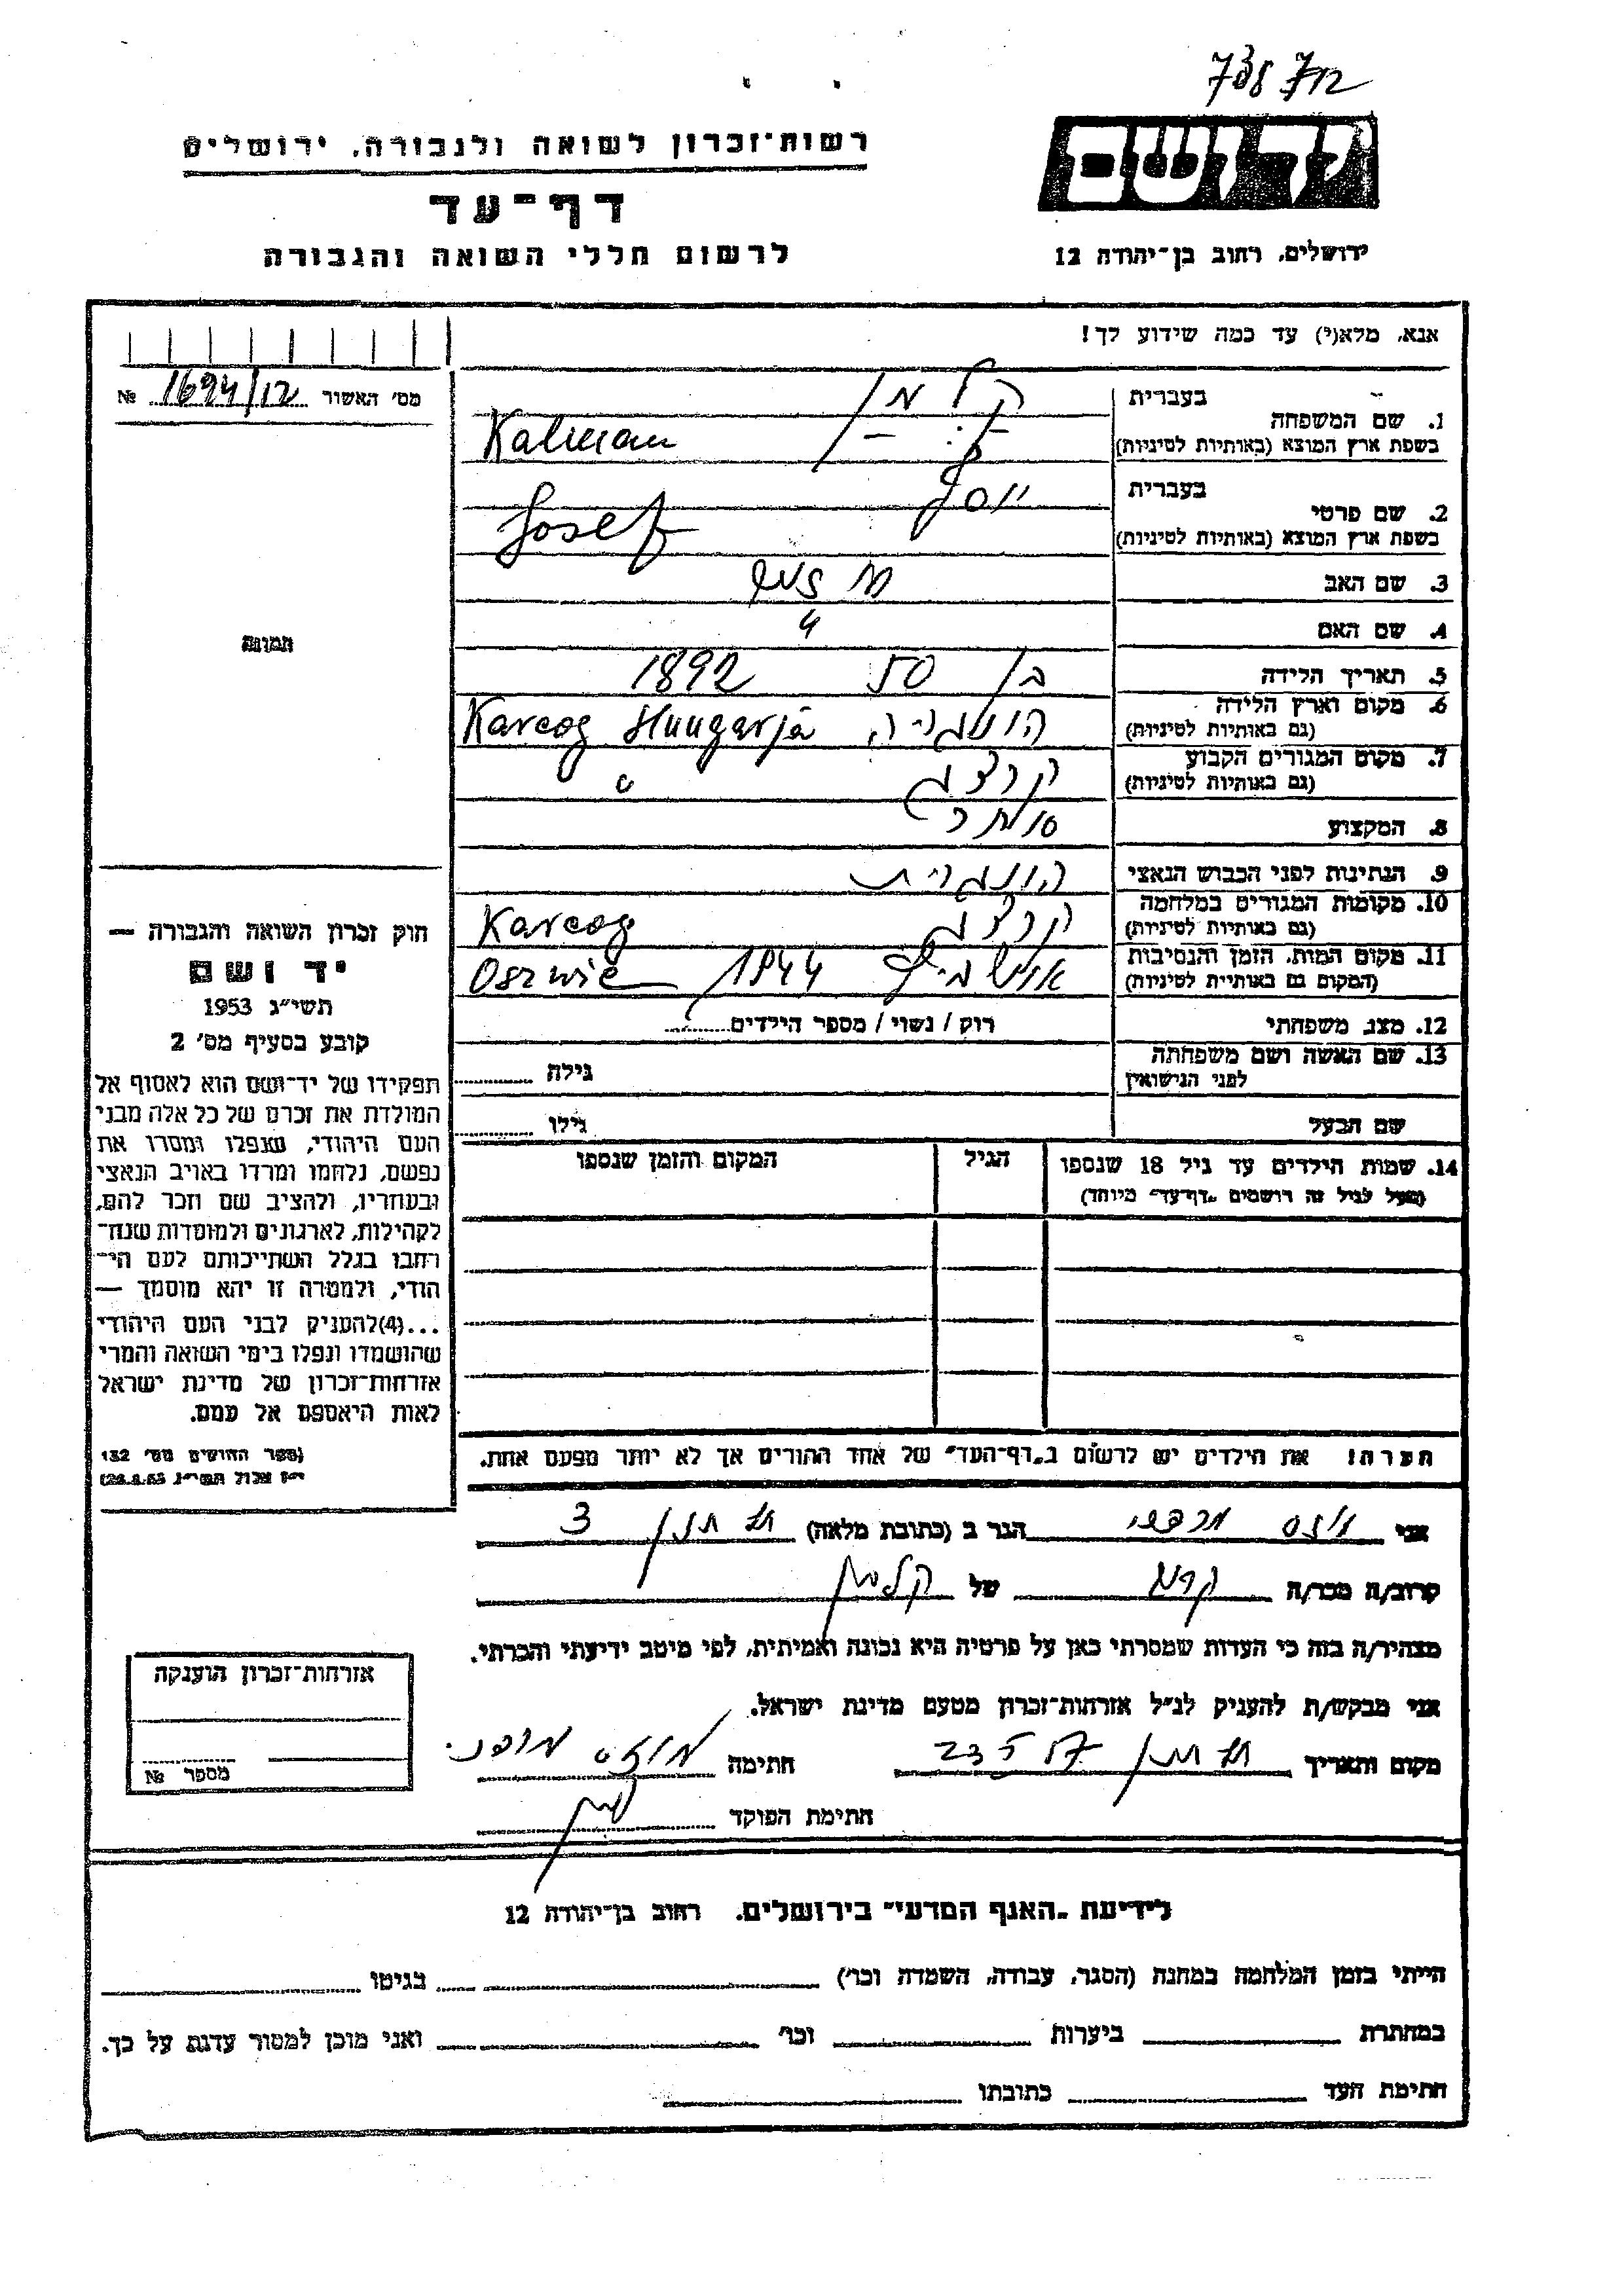 רשות־זכרון לשואה ולגבורה, ירושלים
דף־עד
לרשום חללי השואה והגבורה
יד ושם
ירושלים, רחוב בן־יהודה 12
אנא, מלא(י) עד כמה שידוע לך!
מס' האשור 1694/12 №
תמונה
1. שם המשפחה בעברית קלמן
בשפת ארץ המוצא (באותיות לטיניות) Kalman
2. שם פרטי בעברית יוסף
בשפת ארץ המוצא (באותיות לטיניות) Josef
3. שם האב
4. שם האם
5. תאריך הלידה בן 50 1892
6. מקום וארץ הלידה הונגריה Karcog Hungarja
(גם באותיות לטיניות)
7. מקום המגורים הקבוע קרצג
(גם באותיות לטיניות)
8. המקצוע סוחר
9. הנתינות לפני הכבוש הנאצי הונגרית
10. מקומות המגורים במלחמה קרצג Karcog
(גם באותיות לטיניות)
11. מקום המות, הזמן והנסיבות 1944 Oszwic
(המקום גם באותיות לטיניות)
12. מצב משפחתי רוק / נשוי / מספר הילדים
13. שם האשה ושם משפחתה גילה
לפני הנישואין
שם הבעל גילו
14. שמות הילדים עד גיל 18 שנספו הגיל המקום והזמן שנספו
(מעל לגיל זה רושמים "דף־עד" מיוחד)
חוק זכרון השואה והגבורה —
יד ושם
תשי"ג 1953
קובע בסעיף מס' 2
תפקידו של יד־ושם הוא לאסוף אל
המולדת את זכרם של כל אלה מבני
העם היהודי, שנפלו ומסרו את
נפשם, נלחמו ומרדו באויב הנאצי
ובעוזריו, ולהציב שם וזכר להם,
לקהילות, לארגונים ולמוסדות שנח־
רבו בגלל השתייכותם לעם הי־
הודי, ולמטרה זו יהא מוסמך —
...(4)להעניק לבני העם היהודי
שהושמדו ונפלו בימי השואה והמרי
אזרחות־זכרון של מדינת ישראל
לאות היאספם אל עמם.
(ספר החוקים מס' 132
י"ז אלול תשי"ג, 28.8.53)
הערה! את הילדים יש לרשום ב"דף־העד" של אחד ההורים אך לא יותר מפעם אחת.
אני הגר ב (כתובת מלאה) 3
קרוב/ה מכר/ה קרוב של קלמן
מצהיר/ה בזה כי העדות שמסרתי כאן על פרטיה היא נכונה ואמיתית, לפי מיטב ידיעתי והכרתי.
אני מבקש/ת להעניק לנ"ל אזרחות־זכרון מטעם מדינת ישראל.
מקום ותאריך חתימה
חתימת הפוקד
אזרחות־זכרון הוענקה
מספר №
לידיעת "האגף המדעי" בירושלים, רחוב בן־יהודה 12
הייתי בזמן המלחמה במחנה (הסגר, עבודה, השמדה וכו') בגיטו
במחתרת ביערות וכו' ואני מוכן למסור עדות על כך.
חתימת העד כתובתו